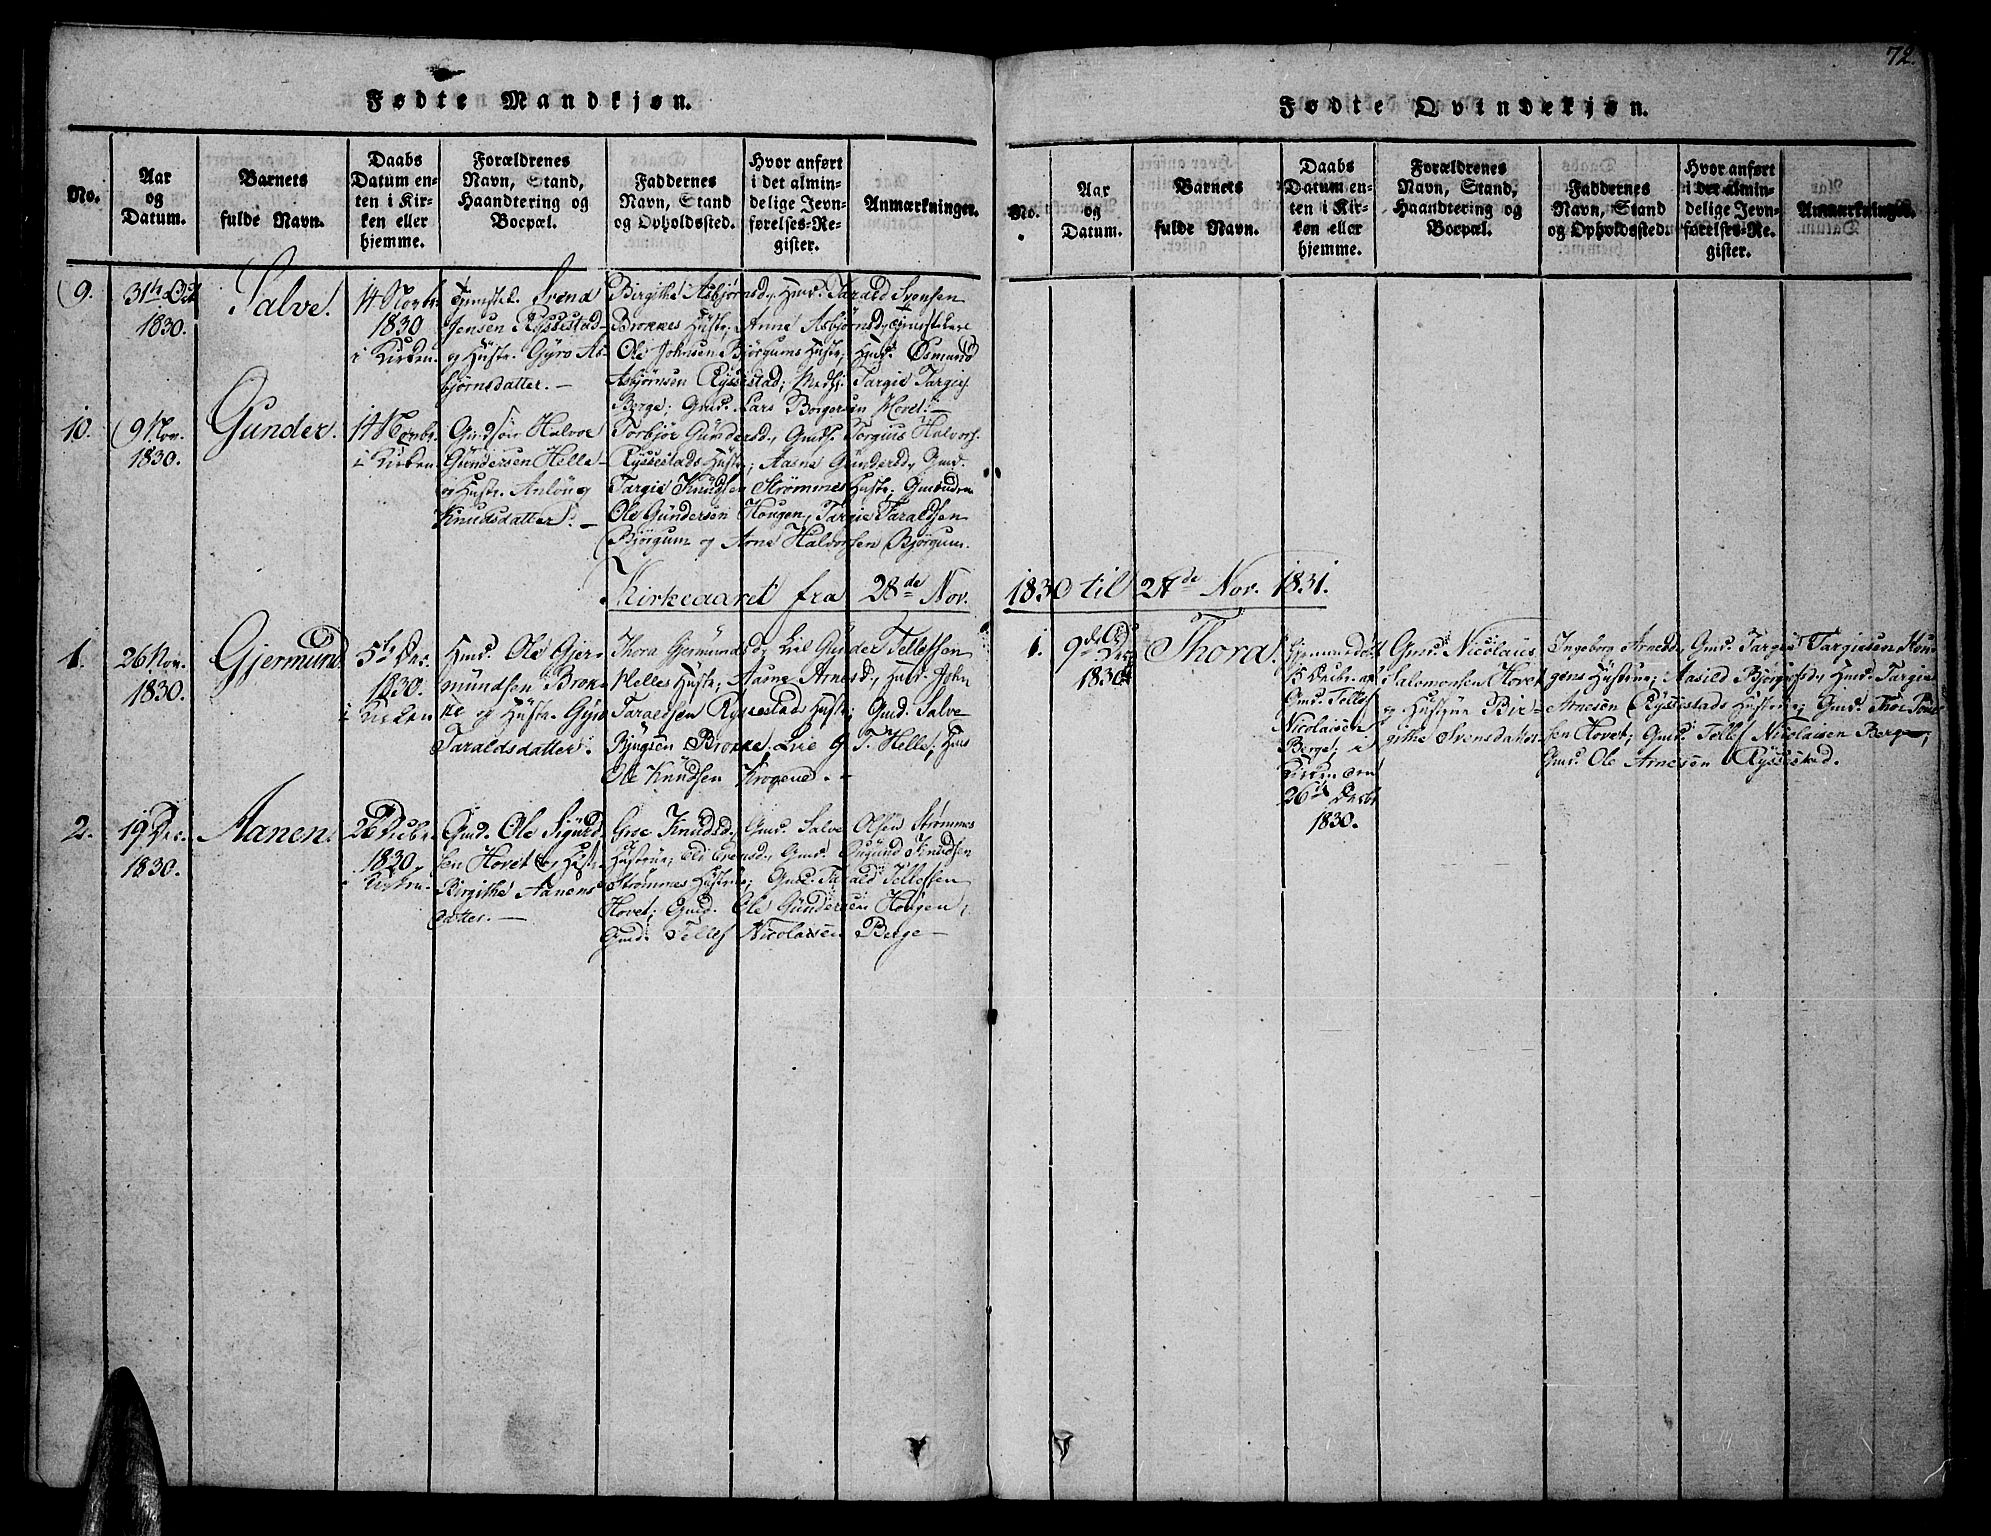 72.
Fødte Mandkjøn.
No.
Aar
og
Datum.
Barnets
fulde Navn.
Daabs
Datum en-
ten i Kir-
ken eller
hjemme.
Forældrenes
Navn, Stand,
Haandtering og
Bopæl.
Faddernes
Navn, Stand
og Opholdssted.
Hvor anført
i det almin-
delige Jevn-
førelses-Re-
gister.
Anmærkninger.
9.
31te Oct
1830.
Salve.
14 Novbr
1830
i Kirken.
Svend
Jensen Ryssestad
og Hustr. Gyro As-
bjørnsdatter. –
Birgithe Asbjørnsd., Gmd. Tarald Svensen
Brokkes Hustr; Anne Asbjørnsd.,
Ole Johnsen Bjørgums Hustr; Osmund
Asbjørnsen Ryssestad; Targie Targies.
Berge; Gmd. Lars Borgersen Hovet. –
10.
9 Nov.
1830.
Gunder.
14 Novbr.
i Kirken
Halvor
Gundersen Helle
og Hustr. Anlaug
Knudsdatter. –
Torbjør Gundersd., Gmd. Torgius Halvors.
Ryssestads Hustr; Aasne Gundersd., Gmd.
Targie Knudsen Strømmes Hustr;
Ole Gundersen Hougen, Targie Taraldsen
Bjørgum og Arne Halvorsen Bjørgum.
Kirkeaaret fra 28de Nov.
1.
26 Nov.
1830.
Gjermund.
5te Dec.
1830.
i Kirken
Ole Gjer-
mundsen Brok-
ke og Hustr. Gyro
Taraldsdatter.
Thora Gjermundsd., Gunder Tellefsen
Helles Hustr; Aasne Arnesd., John
Taraldsen Ryssestads Hustr; Gmd. Salve
Brokke. G. T. Helle;
Ole Knudsen Krogene. –
2.
19 Dec.
1830.
Aanen.
26 Decbr.
1830.
i Kirken.
Gmd. Ole Sigurd-
sen Hovet og Hustr.
Birgithe Aanens-
datter. –
Knudsd., Gmd. Salve Olsen Strømmes
Hustrue; Gmd. Knudsen
Strømmes Hustrue; Gmd. Tarald Tellefsen
Hovet; Gmd. Ole Gundersen Hougen,
Gmd. Tellef Nicolaisen Berge –
Fødte Qvindekjøn.
No.
Aar
og
Datum.
Barnets
fulde Navn.
Daabs
Datum en-
ten i Kir-
ken eller
hjemme.
Forældrenes
Navn, Stand,
Haandtering og
Bopæl.
Faddernes
Navn, Stand
og Opholdssted.
Hvor anført
i det almin-
delige Jevn-
førelses-Re-
gister.
Anmærkninger.
1830 til 27de Nov. 1831.
1.
9de Dec
1830
Thora.
Hjemmedøbt
Decbr. af
Gmd. Tellef
Nicolaisen
Berge; i
Kirken den
26de Decbr
1830.
Gmd. Nicolaus
Salomonsen Hovet
og Hustrue Bir-
githe Svensdatter
Ingeborg Arnesd., Gmd. Targie Targiesen Hou-
gens Hustrue; Aasild Bjørgufsd., Gmd. Targie
Arnesen Ryssestads Hustrue; Gmd. Thor
sen Hovet; Gmd. Tellef Nicolaisen Berge;
Gmd. Ole Arnesen Ryssestad.